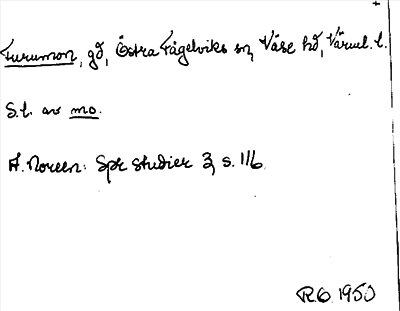 Furumon, gd, Östra Fågelviks sn, Väse hd, Värml. l.
S.l. av mo.
A. Noreen: Spr studier 3, s. 116.
R.O. 1950